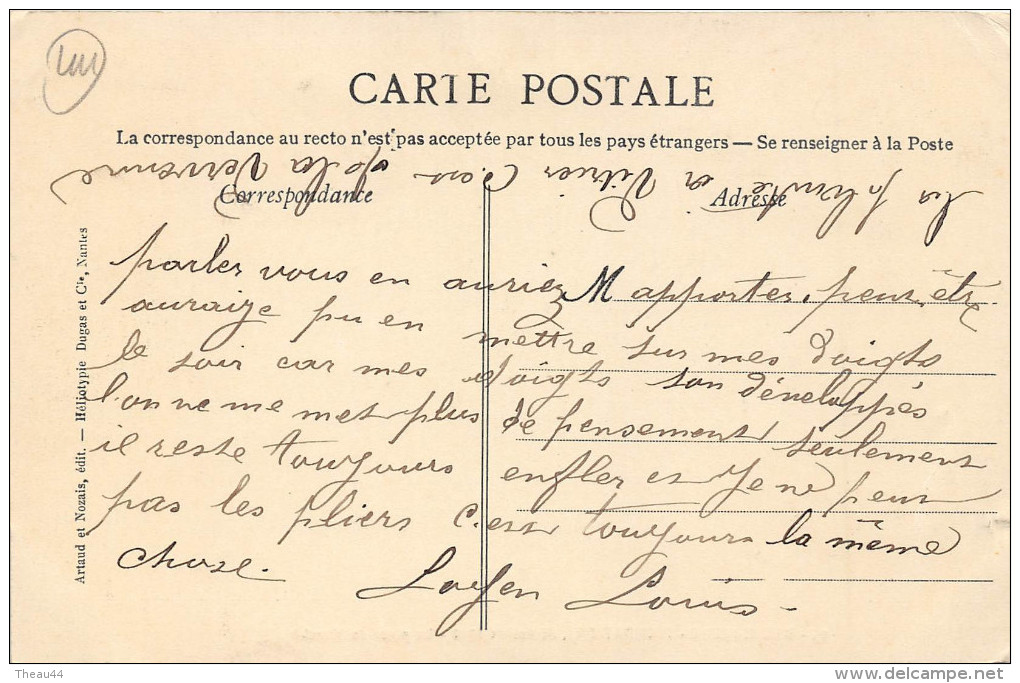 CARTE POSTALE
La correspondance au recto n'est pas acceptée par tous les pays étrangers — Se renseigner à la Poste
Correspondance
Adresse
parler vous en auriez M apporter, peut être
auraize pu en mettre sur mes doigts
le soir car mes doigts son développés
l'on ne me met plus de pensement seulement
il reste toujours enfler et Je ne peut
pas les pliers c'est toujours la même
chose.
Loyen Louis -
Artaud et Nozais, édit. — Héliotypie Dugas et Cie, Nantes
Theau44
delcampe.net